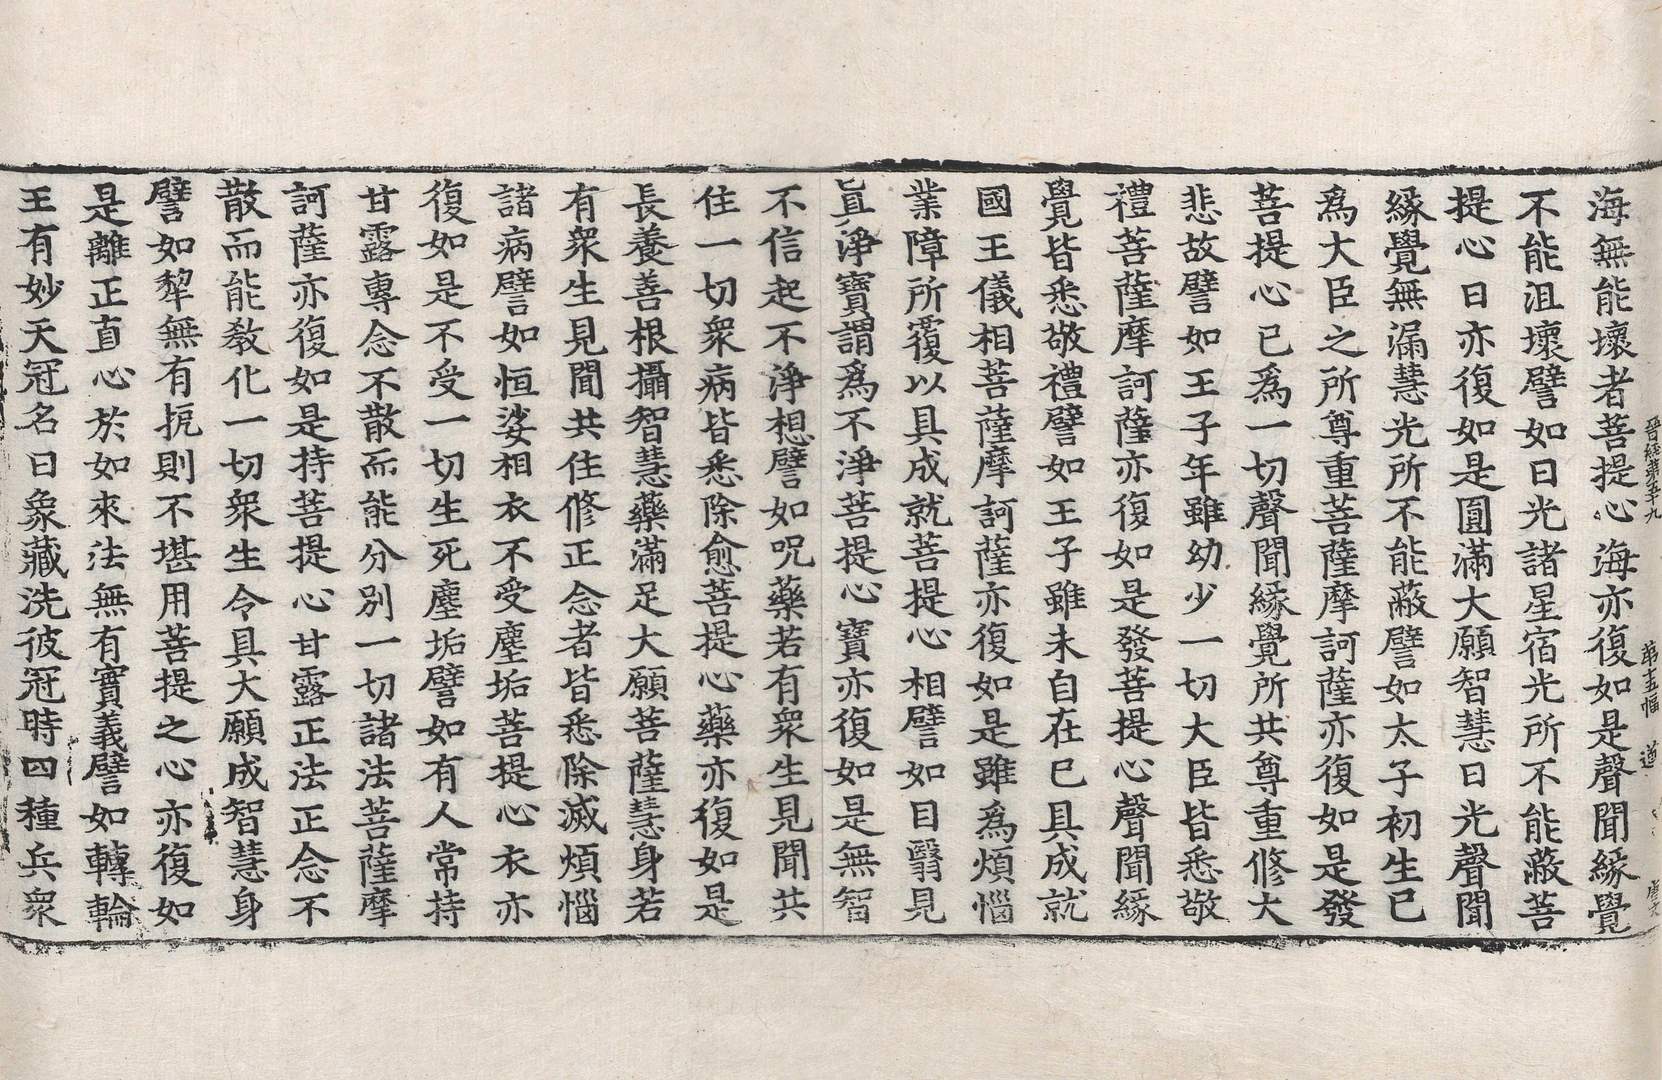 晉經第五十九　第十五幅　道
海無能壞者菩提心海亦復如是聲聞緣覺
不能沮壞譬如日光諸星宿光所不能蔽菩
提心日亦復如是圓滿大願智慧日光聲聞
緣覺無漏慧光所不能蔽譬如太子初生已
爲大臣之所尊重菩薩摩訶薩亦復如是發
菩提心已爲一切聲聞緣覺所共尊重修大
悲故譬如王子年雖幼少一切大臣皆悉敬
禮菩薩摩訶薩亦復如是發菩提心聲聞緣
覺皆悉敬禮譬如王子雖未自在已具成就
國王儀相菩薩摩訶薩亦復如是雖爲煩惱
業障所覆以具成就菩提心相譬如目翳見
眞淨寶謂爲不淨菩提心寶亦復如是無智
不信起不淨想譬如呪藥若有衆生見聞共
住一切衆病皆悉除愈菩提心藥亦復如是
長養善根攝智慧藥滿足大願菩薩慧身若
有衆生見聞共住修正念者皆悉除滅煩惱
諸病譬如恒娑相衣不受塵垢菩提心衣亦
復如是不受一切生死塵垢譬如有人常持
甘露專念不散而能分別一切諸法菩薩摩
訶薩亦復如是持菩提心甘露正法正念不
散而能教化一切衆生令具大願成智慧身
譬如犂無有扼則不堪用菩提之心亦復如
是離正直心於如來法無有實義譬如轉輪
王有妙天冠名曰象藏洗彼冠時四種兵衆